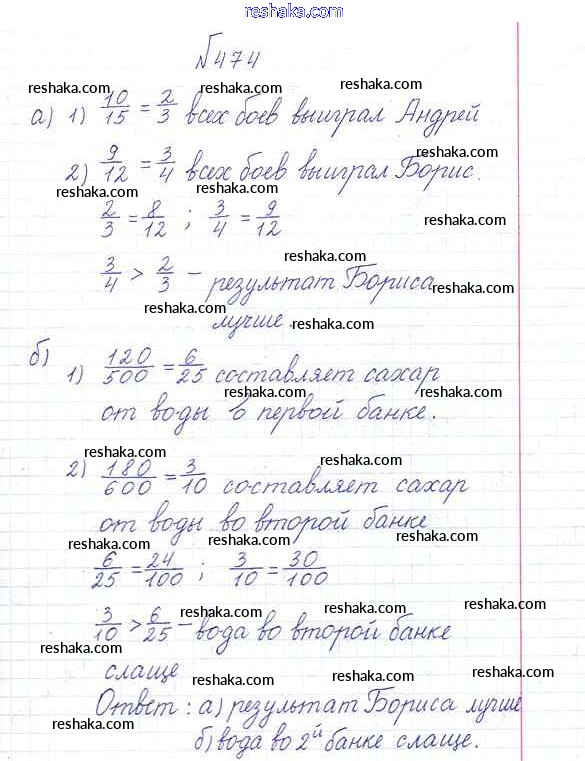 reshaka.com
№474
reshaka.com
reshaka.com reshaka.com
а) 1) 10/15 = 2/3 всех боев выиграл Андрей
reshaka.com
2) 9/12 = 3/4 всех боев выиграл Борис.
reshaka.com reshaka.com
2/3 = 8/12 ; 3/4 = 9/12
reshaka.com
reshaka.com
3/4 > 2/3 - результат Бориса
reshaka.com
reshaka.com
лучше.
reshaka.com
б) 1) 120/500 = 6/25 составляет сахар
reshaka.com
reshaka.com
от воды в первой банке.
reshaka.com
reshaka.com
reshaka.com
2) 180/600 = 3/10 составляет сахар
reshaka.com
от воды во второй банке
reshaka.com
reshaka.com
6/25 = 24/100 ; 3/10 = 30/100
reshaka.com
3/10 > 6/25 - вода во второй банке
reshaka.com
слаще
reshaka.com
Ответ: а) результат Бориса лучше
reshaka.com
reshaka.com
б) вода во 2й банке слаще.